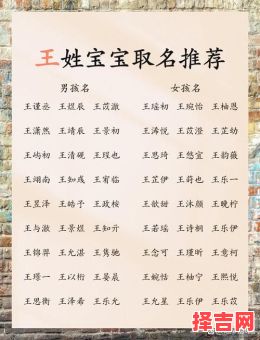 王姓宝宝取名推荐
男孩名 女孩名
王谨丞 王煜辰 王苡澈 王瑶初 王琬怡 王柚恩
王潇然 王靖辰 王景初 王浠悦 王苡澄 王芷幼
王屿初 王清砚 王珵也 王思琦 王悠宜 王韵薇
王翊南 王知彧 王宥临 王芷伊 王荷也 王乐一
王昱泽 王皓子 王政桉 王歆甜 王沐颜 王晚柠
王与澈 王景煜 王知亓 王若瑶 王诗桐 王乐伊
王锦羿 王允湛 王隽驰 王念可 王瑾昕 王意柯
王璟一 王以桁 王晏晨 王婉恬 王柚宁 王熙悦
王思衡 王泽希 王乐允 王允星 王乐伊 王乐苡
择吉网